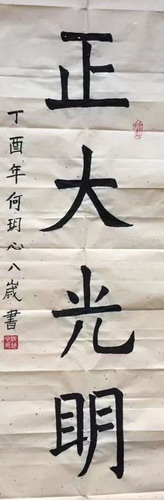 正大光明
丁酉年何玥心八歲書